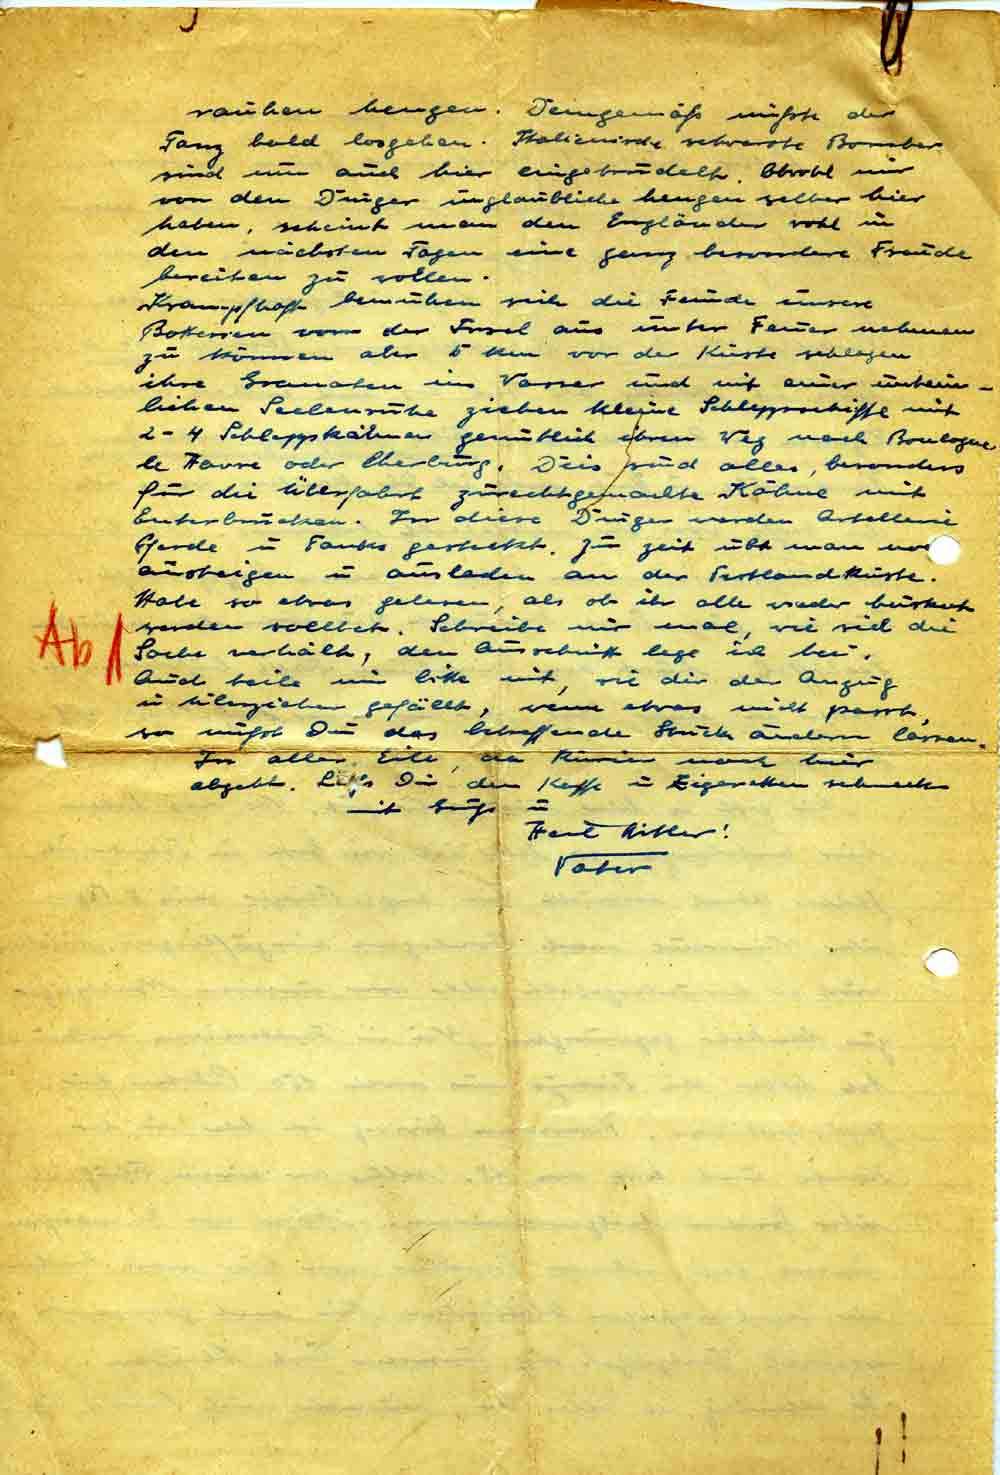 rauhen hengen. Demgemäß müßte der
Tanz bald losgehen. Italienische schwerste Bomber
sind nun auch hier eingetrudelt. Obwohl wir
von den Dinger unglaubliche Mengen selber hier
haben, scheint man den Engländer wohl in
den nächsten Tagen eine ganz besondere Freude
bereiten zu wollen.
Krampfhaft bemühen sich die Feinde unsere
Batterien von der Insel aus unter Feuer nehmen
zu können aber 5 km vor der Küste schlagen
ihre Granaten ins Wasser und mit einer unheim-
lichen Seelenruhe ziehen kleine Schleppschiffe mit
2-4 Schleppkähnen gemütlich ihren Weg nach Boulogne
le Havre oder Cherburg. Dies sind alles, besonders
für die Überfahrt zurechtgemachte Kähne mit
Enterbrücken. In diese Dinger werden Artellerie
Pferde u Tanks gesteckt. Zur zeit übt man noch
aussteigen u ausladen an der Festlandküste.
Habe so etwas gelesen, als ob ihr alle wieder
werden solltet. Schreibe mir mal, wie sich die
Ab Sache verhält, den Ausschnitt lege ich bei.
Auch teile mir bitte mit, wie dir der Anzug
u Überzieher gefällt, wenn etwas nicht passt,
so mußt Du das betreffende Stück ändern lassen.
In aller Eile, da Kurier noch hier
abgeht. Laß Dir den Kaffe u Zigaretten schmecken
mit Gruß u
Heil Hitler!
Vater